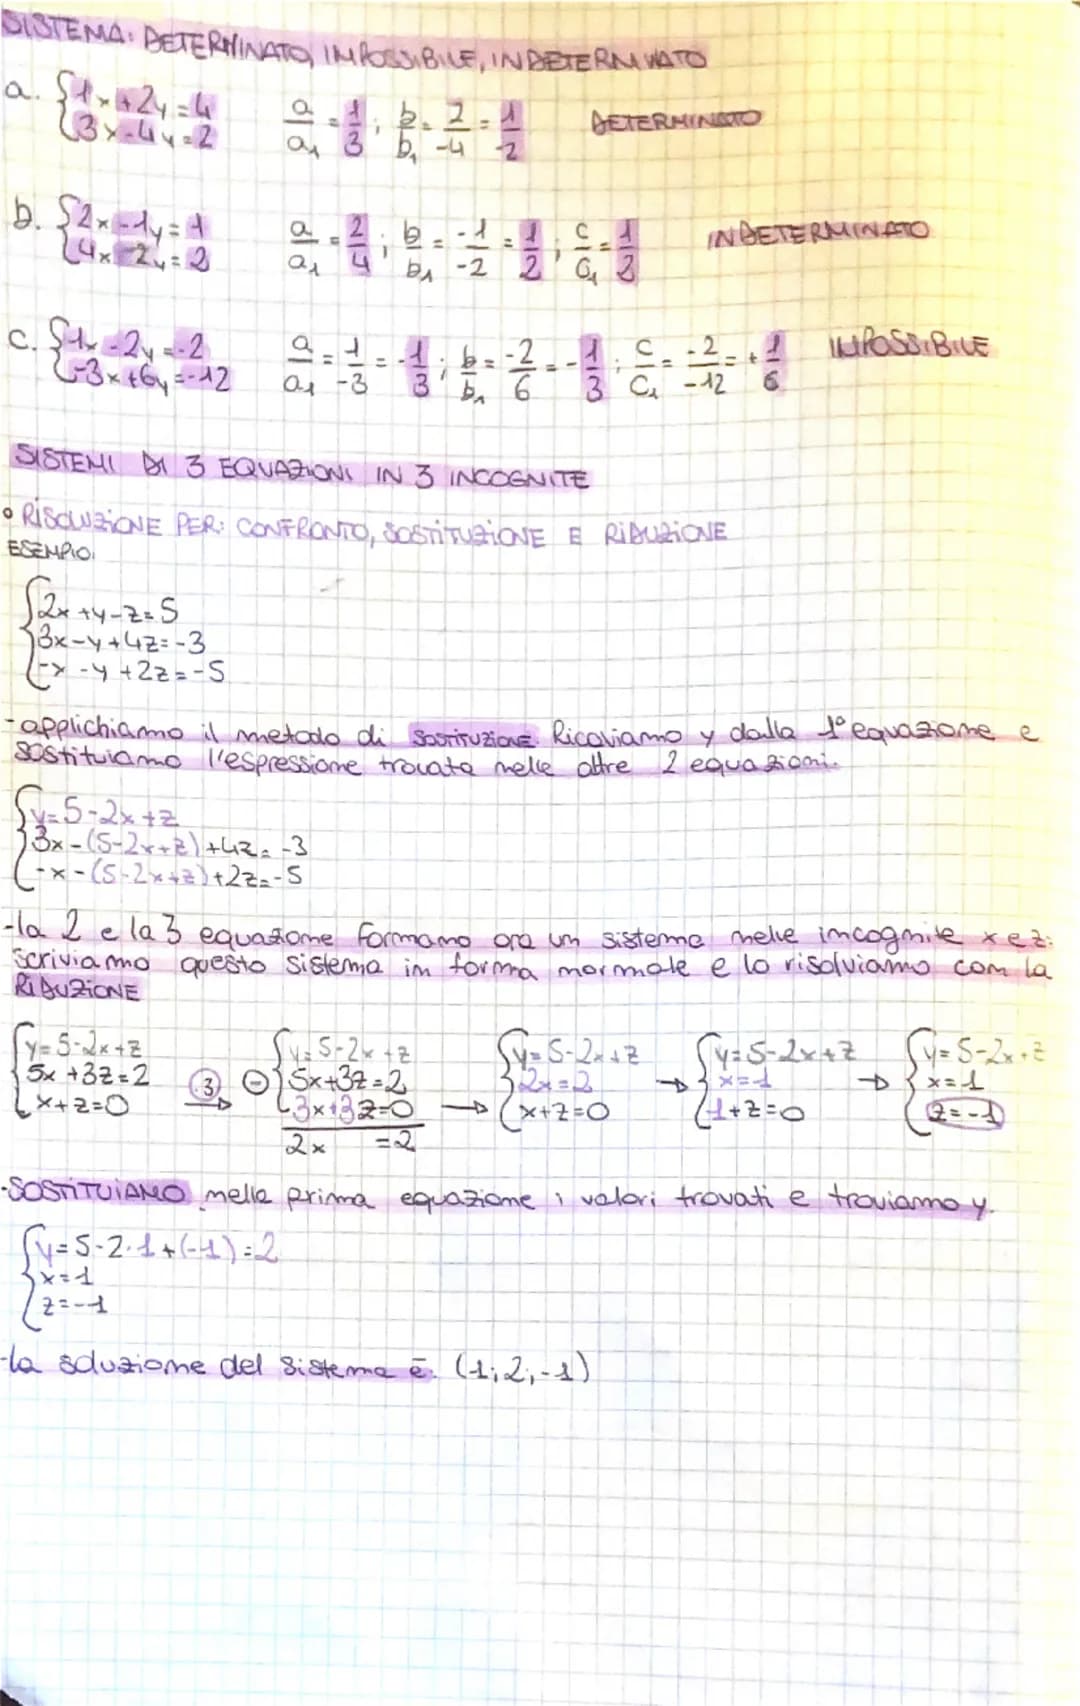 SISTEMA: DETERMINATO, IMPOSSIBILE, INDETERMINATO
a. {1x+2y=4 a/a₁ = 1/3; b/b₁ = 2/-4 = 1/-2 DETERMINATO
3x-4y=2
b. {2x-1y=1 a/a₁ = 2/4; b/b₁ = -1/-2 = 1/2; c/c₁ = 1/2 INDETERMINATO
4x-2y=2
c. {1x-2y=-2 a/a₁ = 1/-3 = -1/3; b/b₁ = -2/6 = -1/3; c/c₁ = -2/-12 = +1/6 IMPOSSIBILE
-3x+6y=-12
SISTEMI DI 3 EQUAZIONI IN 3 INCOGNITE
• RISOLUZIONE PER: CONFRONTO, SOSTITUZIONE E RIDUZIONE
ESEMPIO:
{2x+y-z=5
3x-y+4z=-3
-x-y+2z=-5
-applichiamo il metodo di SOSTITUZIONE. Ricaviamo y dalla 1° equazione e
sostituiamo l'espressione trovata nelle altre 2 equazioni.
{y=5-2x+z
3x-(5-2x+z)+4z=-3
-x-(5-2x+z)+2z=-5
-la 2 e la 3 equazione formano ora un sistema nelle incognite x e z:
scriviamo questo sistema in forma normale e lo risolviamo con la
RIDUZIONE
{y=5-2x+z {y=5-2x+z {y=5-2x+z {y=5-2x+z {y=5-2x+z
5x+3z=2 ·3 → ⊖ 5x+3z=2 2x=2 → x=1 → x=1
x+z=0 3x+3z=0 → x+z=0 1+z=0 z=-1
2x =2
-SOSTITUIAMO nella prima equazione i valori trovati e troviamo y.
{y=5-2·1+(-1)=2
x=1
z=-1
-la soluzione del sistema è: (1;2;-1)